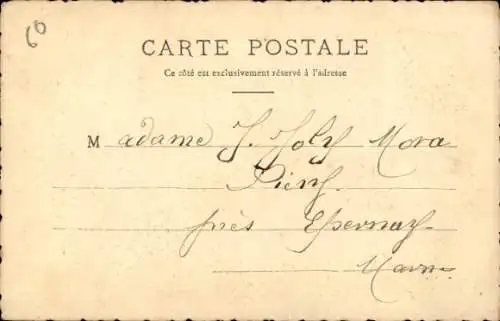 60
CARTE POSTALE
Ce côté est exclusivement réservé à l'adresse
Madame J. Joly Mora
Pierry
près Epernay
Marne